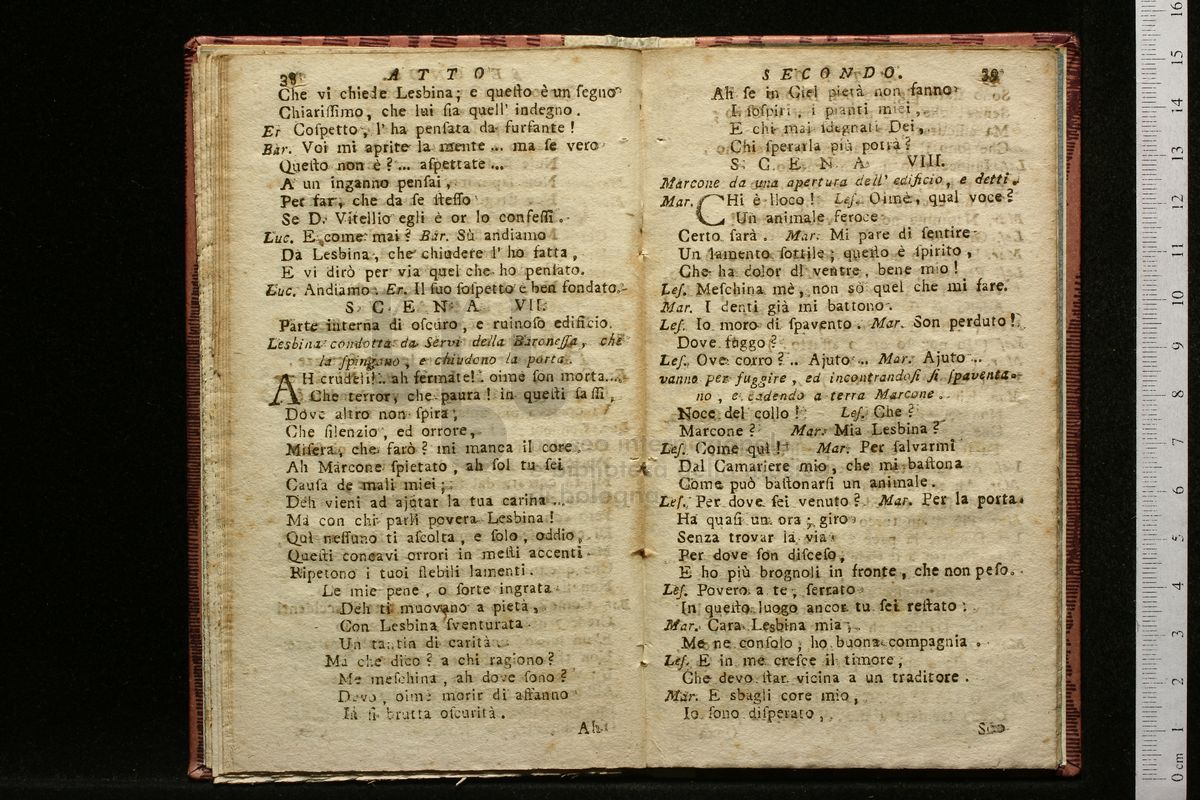 38 ATTO
Che vi chiede Lesbina; e queſto è un ſegno
Chiariſſimo, che lui ſia quell' indegno.
Er Coſpetto, l' ha penſata da furfante!
Bar. Voi mi aprite la mente ... ma ſe vero
Queſto non è? ... aſpettate ...
A un inganno penſai,
Per far, che da ſe ſteſſo
Se D. Vitellio egli è or lo confeſſi.
Luc. E come mai? Bar. Sù andiamo
Da Lesbina, che chiudere l' ho fatta,
E vi dirò per via quel che ho penſato.
Luc. Andiamo. Er. Il ſuo ſoſpetto è ben fondato.
SCENA VII.
Parte interna di oſcuro, e ruinoſo edificio.
Lesbina condotta da Servi della Baroneſſa, che
la ſpingono, e chiudono la porta.
AH crudeli! ah fermate! oimè ſon morta...
Che terror, che paura! in queſti ſaſſi,
Dove altro non ſpira,
Che ſilenzio, ed orrore,
Miſera, che farò? mi manca il core.
Ah Marcone ſpietato, ah ſol tu ſei
Cauſa de mali miei;
Deh vieni ad ajutar la tua carina ...
Ma con chi parli povera Lesbina!
Quì neſſuno ti aſcolta, e ſolo, oddio,
Queſti concavi orrori in meſti accenti
Ripetono i tuoi flebili lamenti.
Le mie pene, o ſorte ingrata
Deh ti muovano a pietà,
Con Lesbina ſventurata
Un tantin di carità.
Ma che dico? a chi ragiono?
Me meſchina, ah dove ſono?
Devo, oimè morir di affanno
In sì brutta oſcurità.
Ah
SECONDO. 39
Ah ſe in Ciel pietà non fanno
I ſoſpiri, i pianti miei,
E chi mai ſdegnati Dei,
Chi ſperarla più potrà?
SCENA VIII.
Marcone da una apertura dell' edificio, e detti.
Mar. CHi è lloco! Leſ. Oimè, qual voce?
Un animale feroce
Certo ſarà. Mar. Mi pare di ſentire
Un lamento ſottile; queſto è ſpirito,
Che ha dolor di ventre, bene mio!
Leſ. Meſchina mè, non sò quel che mi fare.
Mar. I denti già mi battono.
Leſ. Io moro di ſpavento. Mar. Son perduto!
Dove fuggo?
Leſ. Ove corro? .. Ajuto ... Mar. Ajuto ..
vanno per fuggire, ed incontrandoſi ſi ſpaventa-
no, e cadendo a terra Marcone.
Noce del collo! Leſ. Che?
Marcone? Mar. Mia Lesbina?
Leſ. Come quì! Mar. Per ſalvarmi
Dal Camariere mio, che mi baſtona
Come può baſtonarſi un animale.
Leſ. Per dove ſei venuto? Mar. Per la porta.
Ha quaſi un ora; giro
Senza trovar la via
Per dove ſon diſceſo,
E ho più brognoli in fronte, che non peſo.
Leſ. Povero a te, ſerrato
In queſto luogo ancor tu ſei reſtato;
Mar. Cara Lesbina mia,
Me ne conſolo, ho buona compagnia.
Leſ. E in me creſce il timore,
Che devo ſtar vicina a un traditore.
Mar. E sbagli core mio,
Io ſono diſperato,